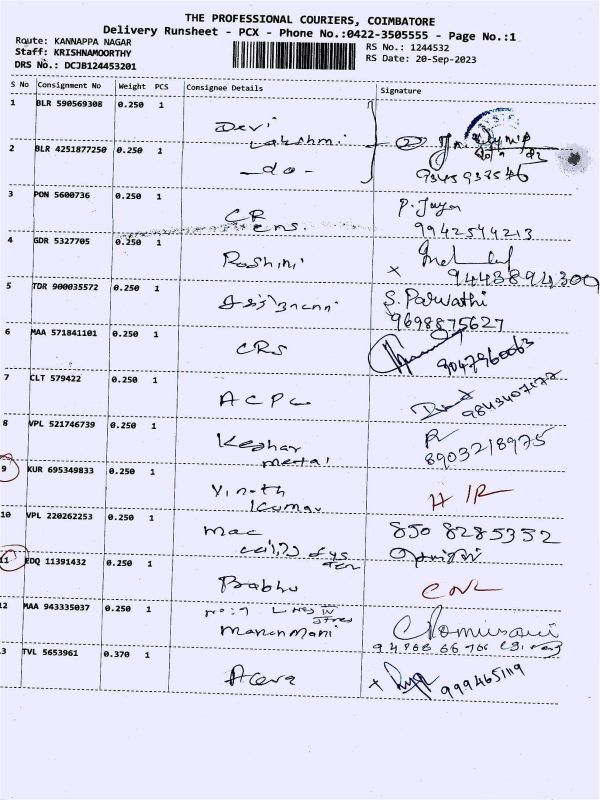 THE PROFESSIONAL COURIERS, COIMBATORE
Delivery Runsheet - PCX - Phone No.:0422-3505555 - Page No.:1
Route: KANNAPPA NAGAR
RS No.: 1244532
Staff: KRISHNAMOORTHY
RS Date: 20-Sep-2023
DRS No.: DCJB124453201
S No Consignment No Weight PCS Consignee Details Signature
1 BLR 590569308 0.250 1
Devi
Lakshmi
2 BLR 4251877250 0.250 1
-do-
3 PON 5600736 0.250 1
P. Jaya
CR
9942544213
4 GDR 5327705 0.250 1
Roshini
5 TDR 900035572 0.250 1
S. Parvathi
9698875627
6 MAA 571841101 0.250 1
CRS
9047960063
7 CLT 579422 0.250 1
9843407177
8 VPL 521746739 0.250 1
Keshar
metal
8903218975
9 KUR 695349833 0.250 1
Vinoth
Kumar
10 VPL 220262253 0.250 1
Mac
850 8285352
11 EDQ 11391432 0.250 1
Prabhu
12 MAA 943335037 0.250 1
Manonmani
13 TVL 5653961 0.370 1